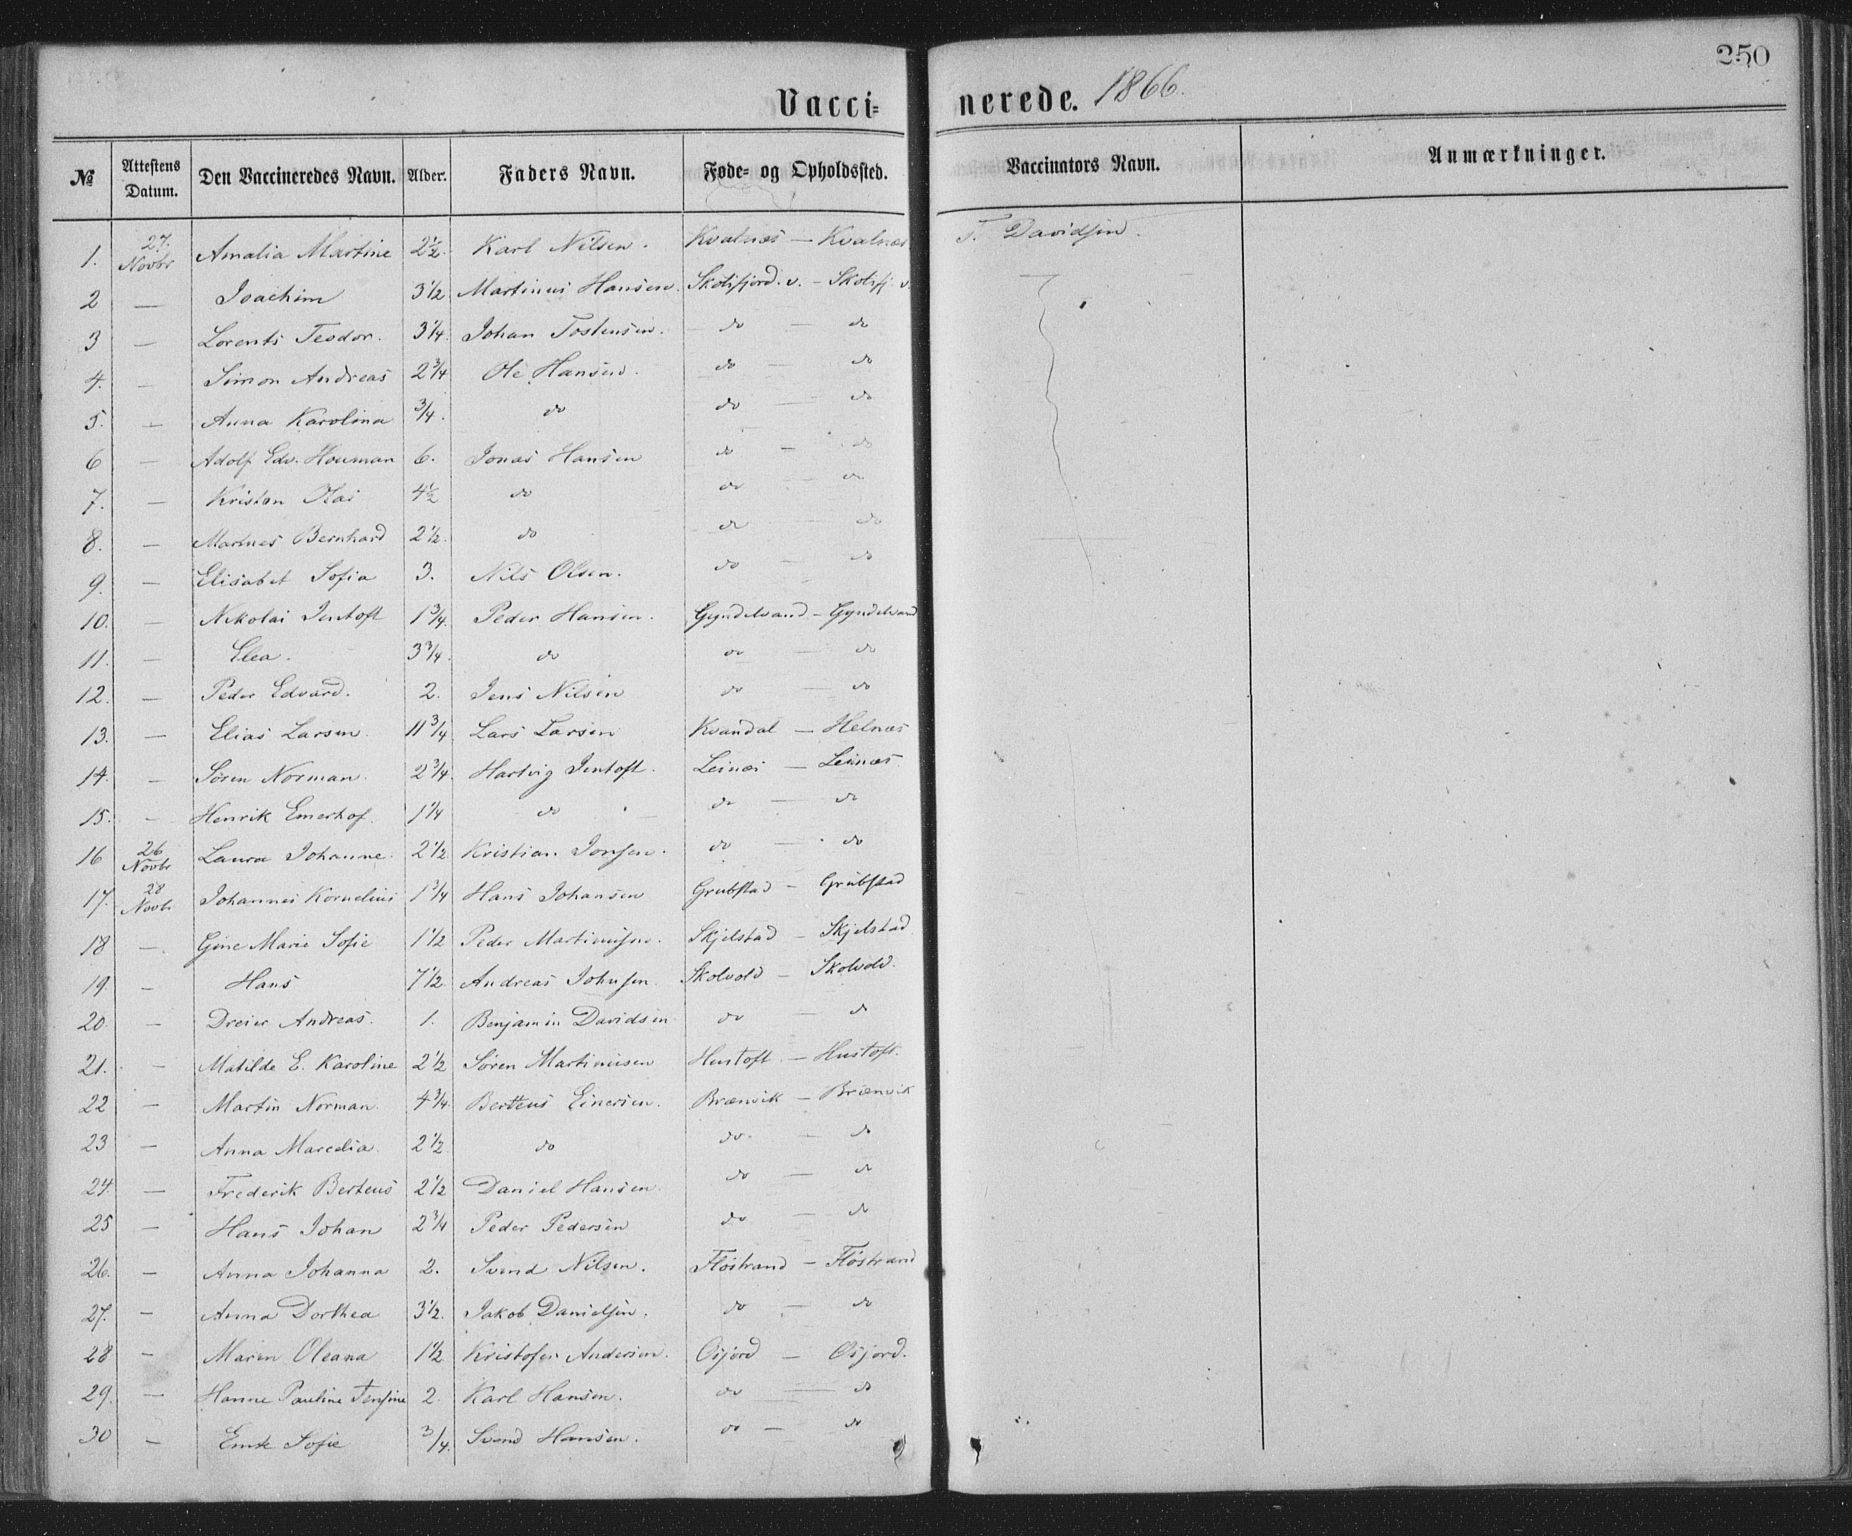 250
Vaccinerede. 1866.
№ Attestens Datum. Den Vaccineredes Navn. Alder. Faders Navn. Føde- og Opholdssted. Vaccinators Navn. Anmærkninger.
1. 27. Novbr Amalia Martine 2½. Karl Nilsen. Kvalnæs — Kvalnæs T. Davidsen.
2 — Joachim 3½ Martinus Hansen. Skotsfjord. v. — Skotsfj. v.
3 — Lorents Teodor. 3¼. Johan Tostensen. do — do
4. — Simon Andreas 2¾ Ole Hansen. do — do
5. — Anna Karolina ¾. do do — do
6 — Adolf Edv. Houman 6. Jonas Hansen do — do
7. — Kristen Olai 4½ do do — do
8. — Martnes Bernhard 2½. do do — do
9. — Elisabet Sofia 3. Nils Olsen. do — do
10. — Nikolai Jentoft 1¾. Peder Hansen. Gyndelvand — Gyndelvand
11. — Elea. 3¾. do do — do
12. — Peder Edvard. 2. Jens Nilsen do — do
13. — Elias Larsen. 11¾ Lars Larsen Kvandal — Helnæs
14. — Søren Norman. 2¾. Hartvig Jentoft. Leinæs — Leinæs.
15. — Henrik Emerhof. 1¼ do do — do
16 26 Novbr Laura Johanne. 2½ Kristian Jonsen. do — do
17. 28 Novbr Johannes Kornelius 1¾ Hans Johansen Grubstad — Grubstad
18 — Gine Marie Sofie 1½ Peder Martinussen. Skjelstad — Skjelstad.
19. — Hans 7½. Andreas Johnsen. Skolvold — Skolvold.
20. — Dreier Andreas. 1. Benjamin Davidsen do — do
21. — Matilde E. Karoline 2½ Søren Martinusen Hustoft — Hustoft.
22 — Martin Norman. 4¾. Berteus Einersen. Brænvik — Brænvik
23 — Anna Marcelia. 2½. do do — do
24. — Frederik Berteus 2½ Daniel Hansen. do — do
25 — Hans Johan 2¾ Peder Pedersen do — do
26. — Anna Johanna 2. Svend Nilsen. Fløstrand — Fløstrand
27. — Anna Dorthea 3½. Jakob Danielsen. do — do
28 — Maren Oleana 1½ Kristofer Andersen. Osjord — Osjord.
29. — Hanne Pauline Jensine 2. Karl Hansen. do — do
30 — Sofie ¾. Svend Hansen. do — do